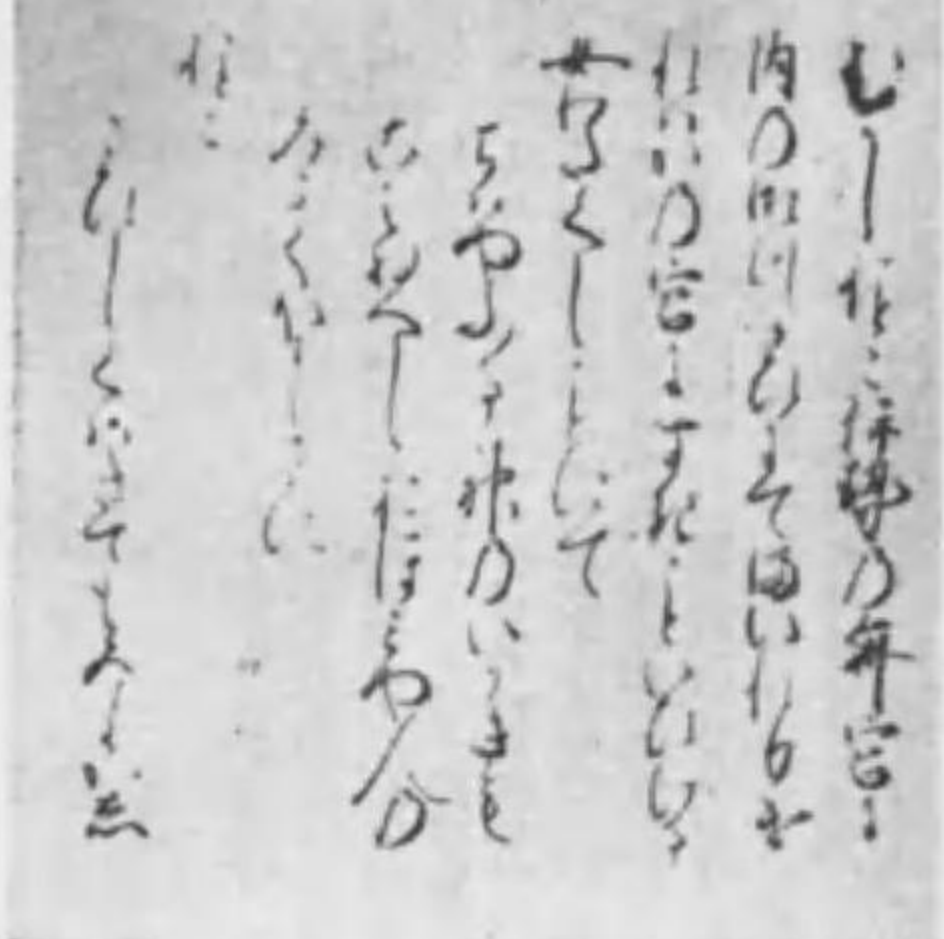 むかしおとこ伊勢の斎宮に
内の御つかひにてまいれりけ
れはかの宮にすきこといひける
女わたくしことにて
ちはやふる神のいかきも
こえぬへしおほみや人の
みまくほしさに
おとこ
こひしくはきても見よかし